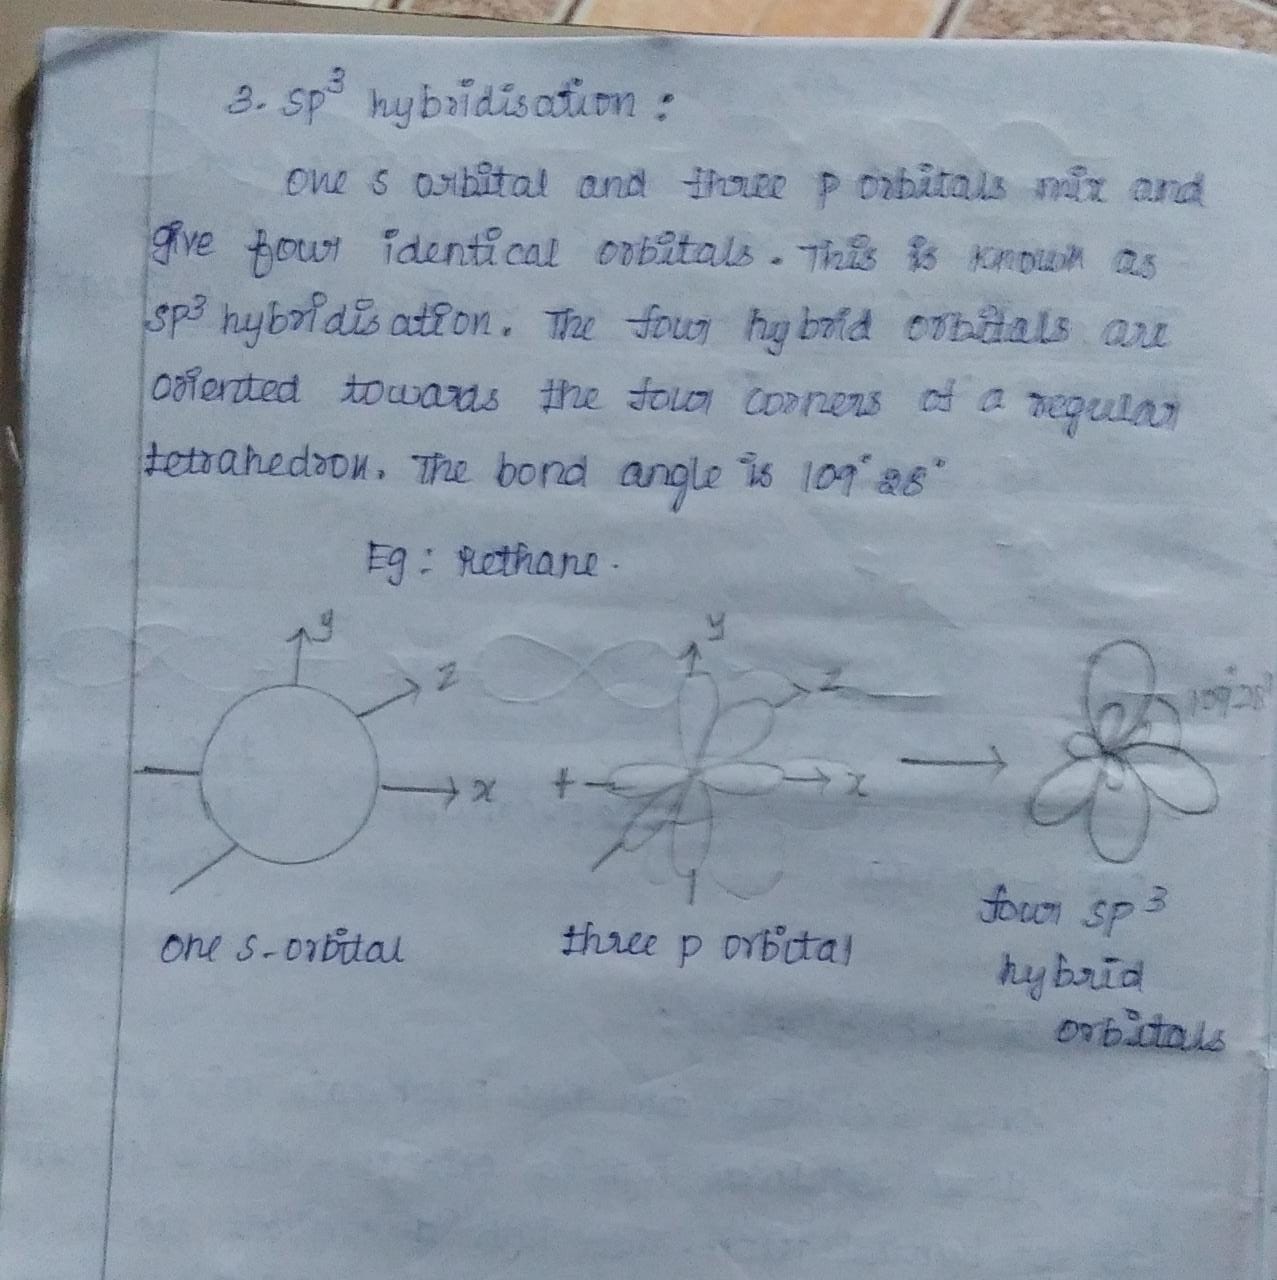 3. sp³ hybridisation :
one s orbital and three p orbitals mix and
give four identical orbitals. This is known as
sp³ hybridisation. The four hybrid orbitals are
oriented towards the four corners of a regular
tetrahedron. The bond angle is 109° 28°
Eg : Methane.
y
z
x
y
z
+
x
109°28'
one s-orbital
three p orbital
four sp³
hybrid
orbitals